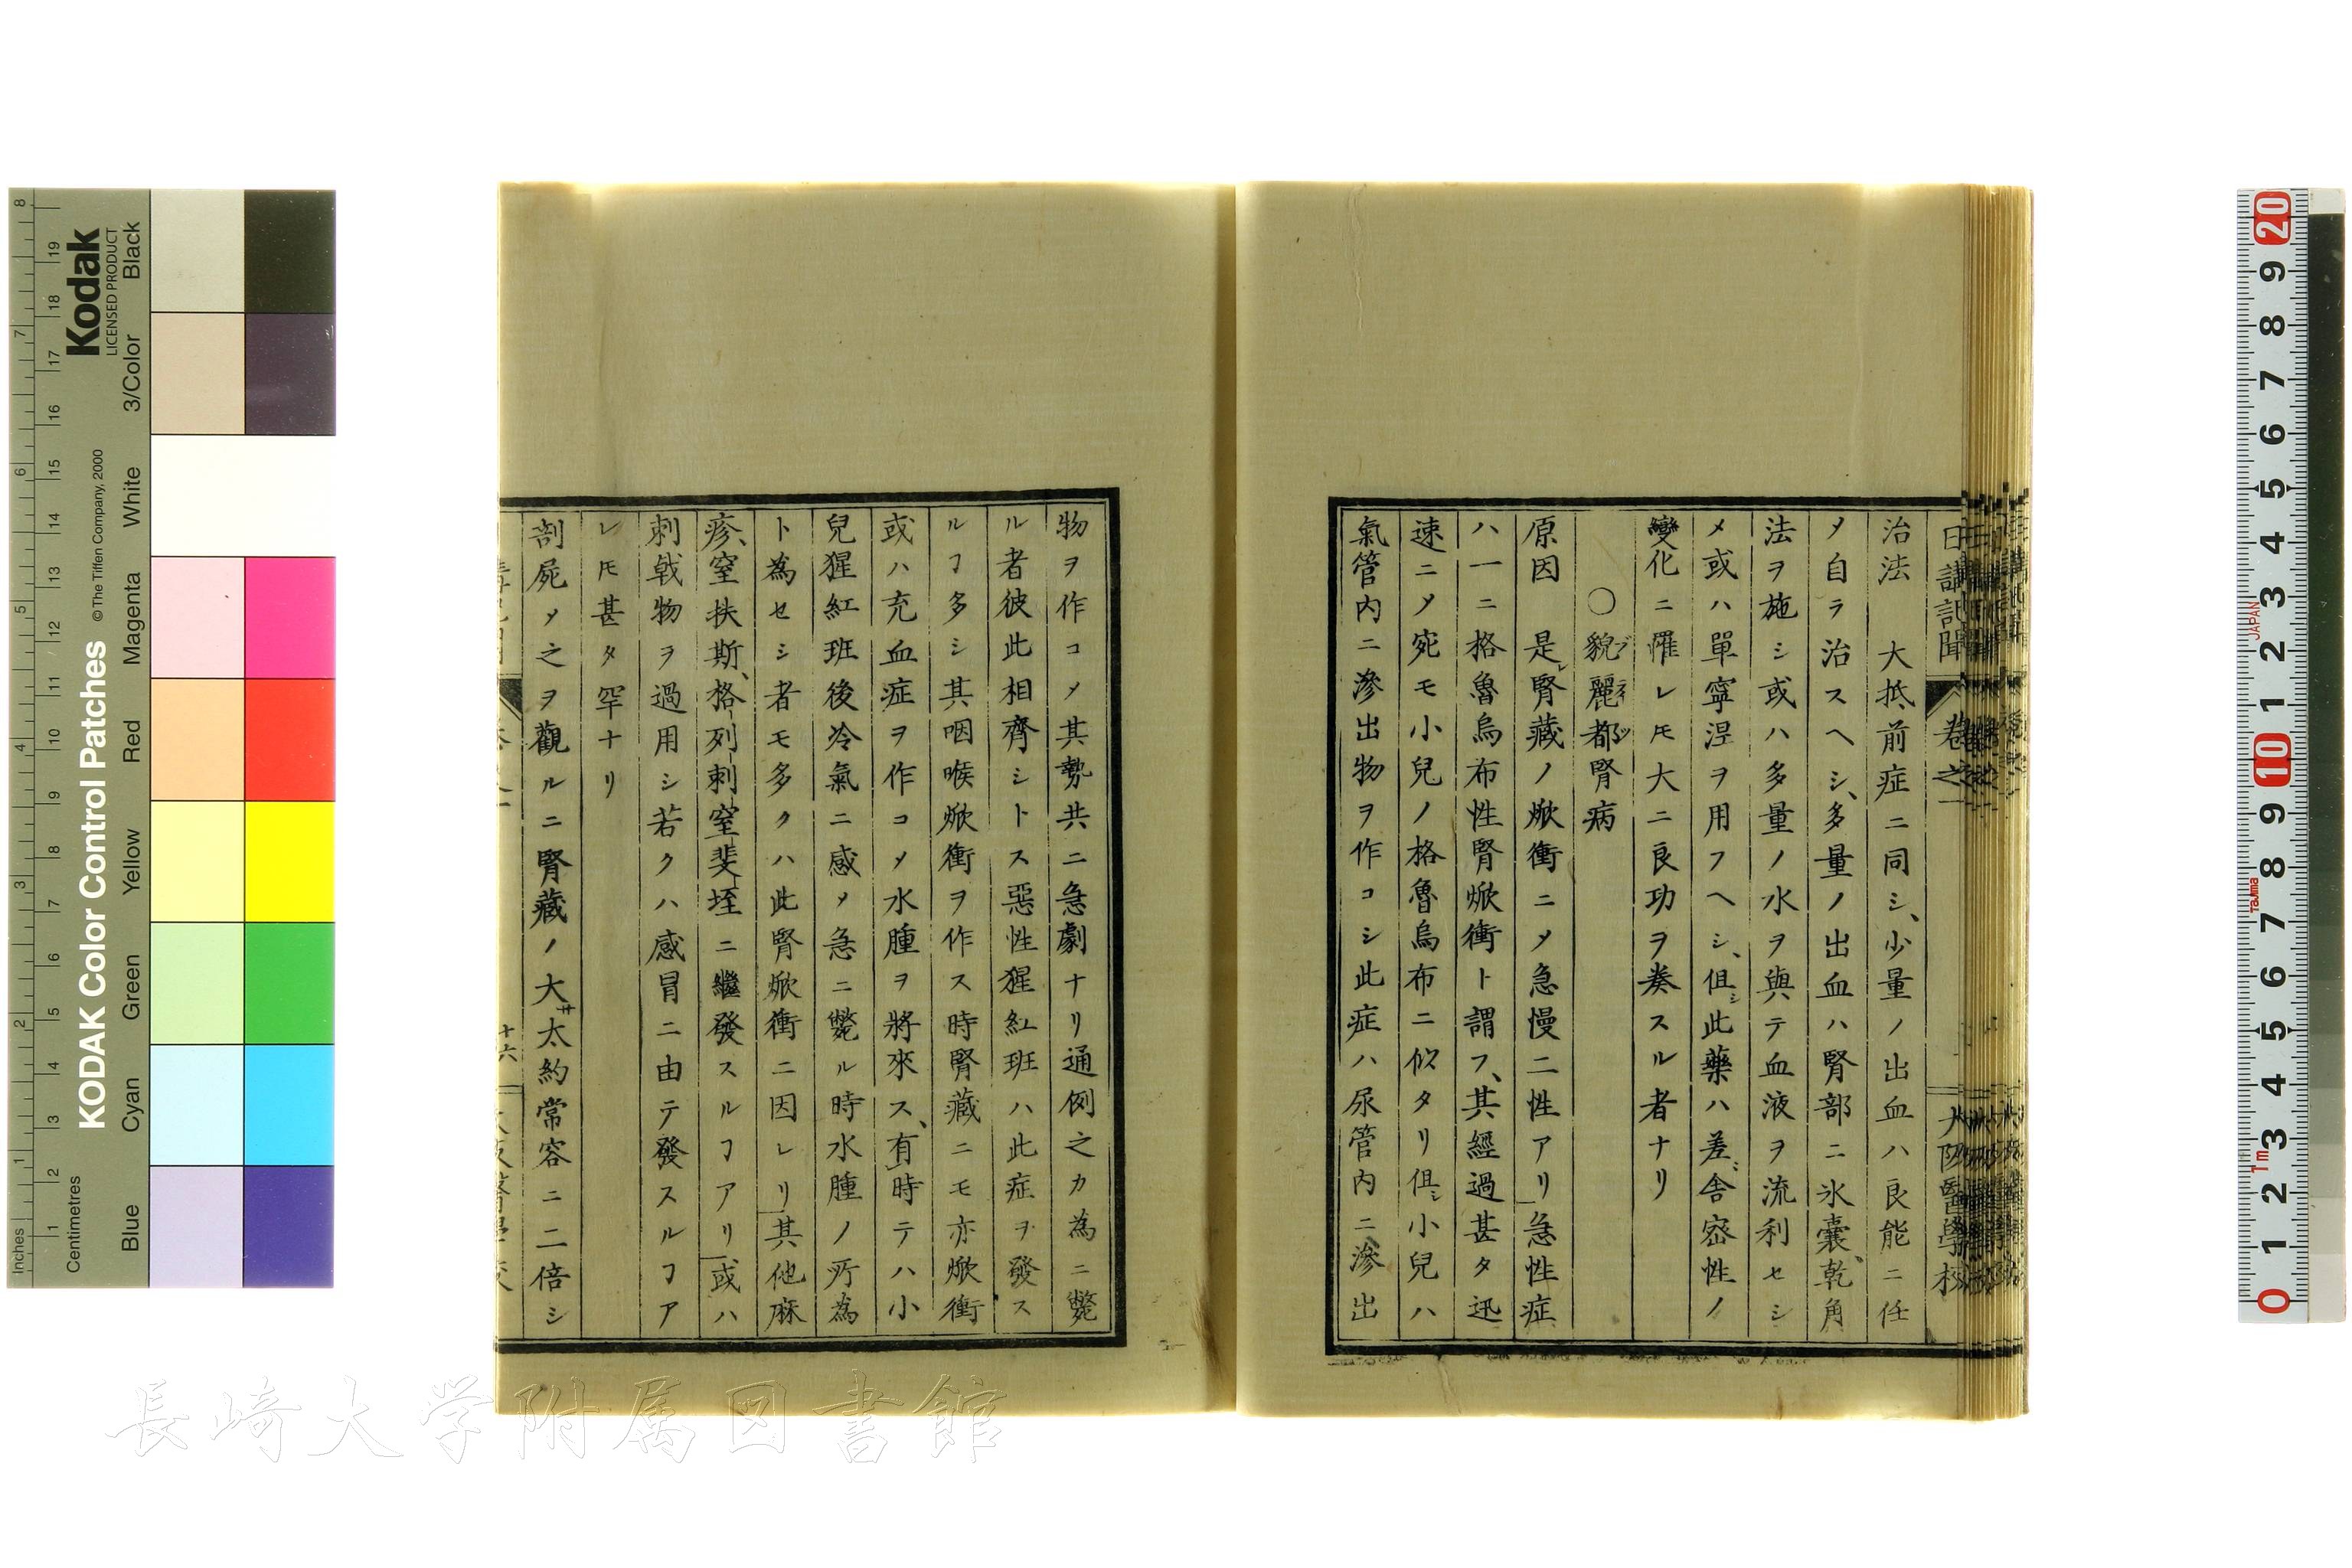 日講記聞 卷之一 大阪醫學校
治法　大抵前症ニ同シ、少量ノ出血ハ良能ニ任
〆自ラ治スヘシ、多量ノ出血ハ腎部ニ氷囊、乾角
法ヲ施シ或ハ多量ノ水ヲ與テ血液ヲ流利セシ
メ或ハ單寧涅ヲ用フヘシ、但シ此藥ハ差ミ舎密性ノ
變化ニ罹レ𪜈大ニ良功ヲ奏スル者ナリ
○貌麗都腎病
ブライツ
原因　是レ腎藏ノ焮衝ニ〆急慢二性アリ急性症
ハ一ニ格魯烏布性腎焮衝ト謂フ、其經過甚タ迅
速ニ〆宛モ小兒ノ格魯烏布ニ似タリ但シ小兒ハ
氣管内ニ滲出物ヲ作コシ此症ハ尿管内ニ滲出
物ヲ作コ〆其勢共ニ急劇ナリ通例之カ為ニ斃
ル者彼此相齊シトス惡性猩紅班ハ此症ヲ發ス
ルヿ多シ其咽喉焮衝ヲ作ス時腎藏ニモ亦焮衝
或ハ充血症ヲ作コ〆水腫ヲ將來ス、有時テハ小
兒猩紅班後冷氣ニ感〆急ニ斃ル時水腫ノ所為
ト為セシ者モ多クハ此腎焮衝ニ因レリ其他麻
疹、窒扶斯、格列刺窒斐垤ニ繼發スルヿアリ或ハ
刺戟物ヲ過用シ若クハ感冒ニ由テ發スルヿア
レ𪜈甚タ罕ナリ
剖屍〆之ヲ觀ルニ腎藏ノ大サ太約常容ニ二倍シ
十六
Kodak
LICENSED PRODUCT
KODAK Color Control Patches
© The Tiffen Company, 2000
Inches
Centimetres
Blue Cyan Green Yellow Red Magenta White 3/Color Black
1 2 3 4 5 6 7 8
1 2 3 4 5 6 7 8 9 10 11 12 13 14 15 16 17 18 19
0 1 2 3 4 5 6 7 8 9 10 1 2 3 4 5 6 7 8 9 20
1m
Tajima
JAPAN
長崎大学附属図書館